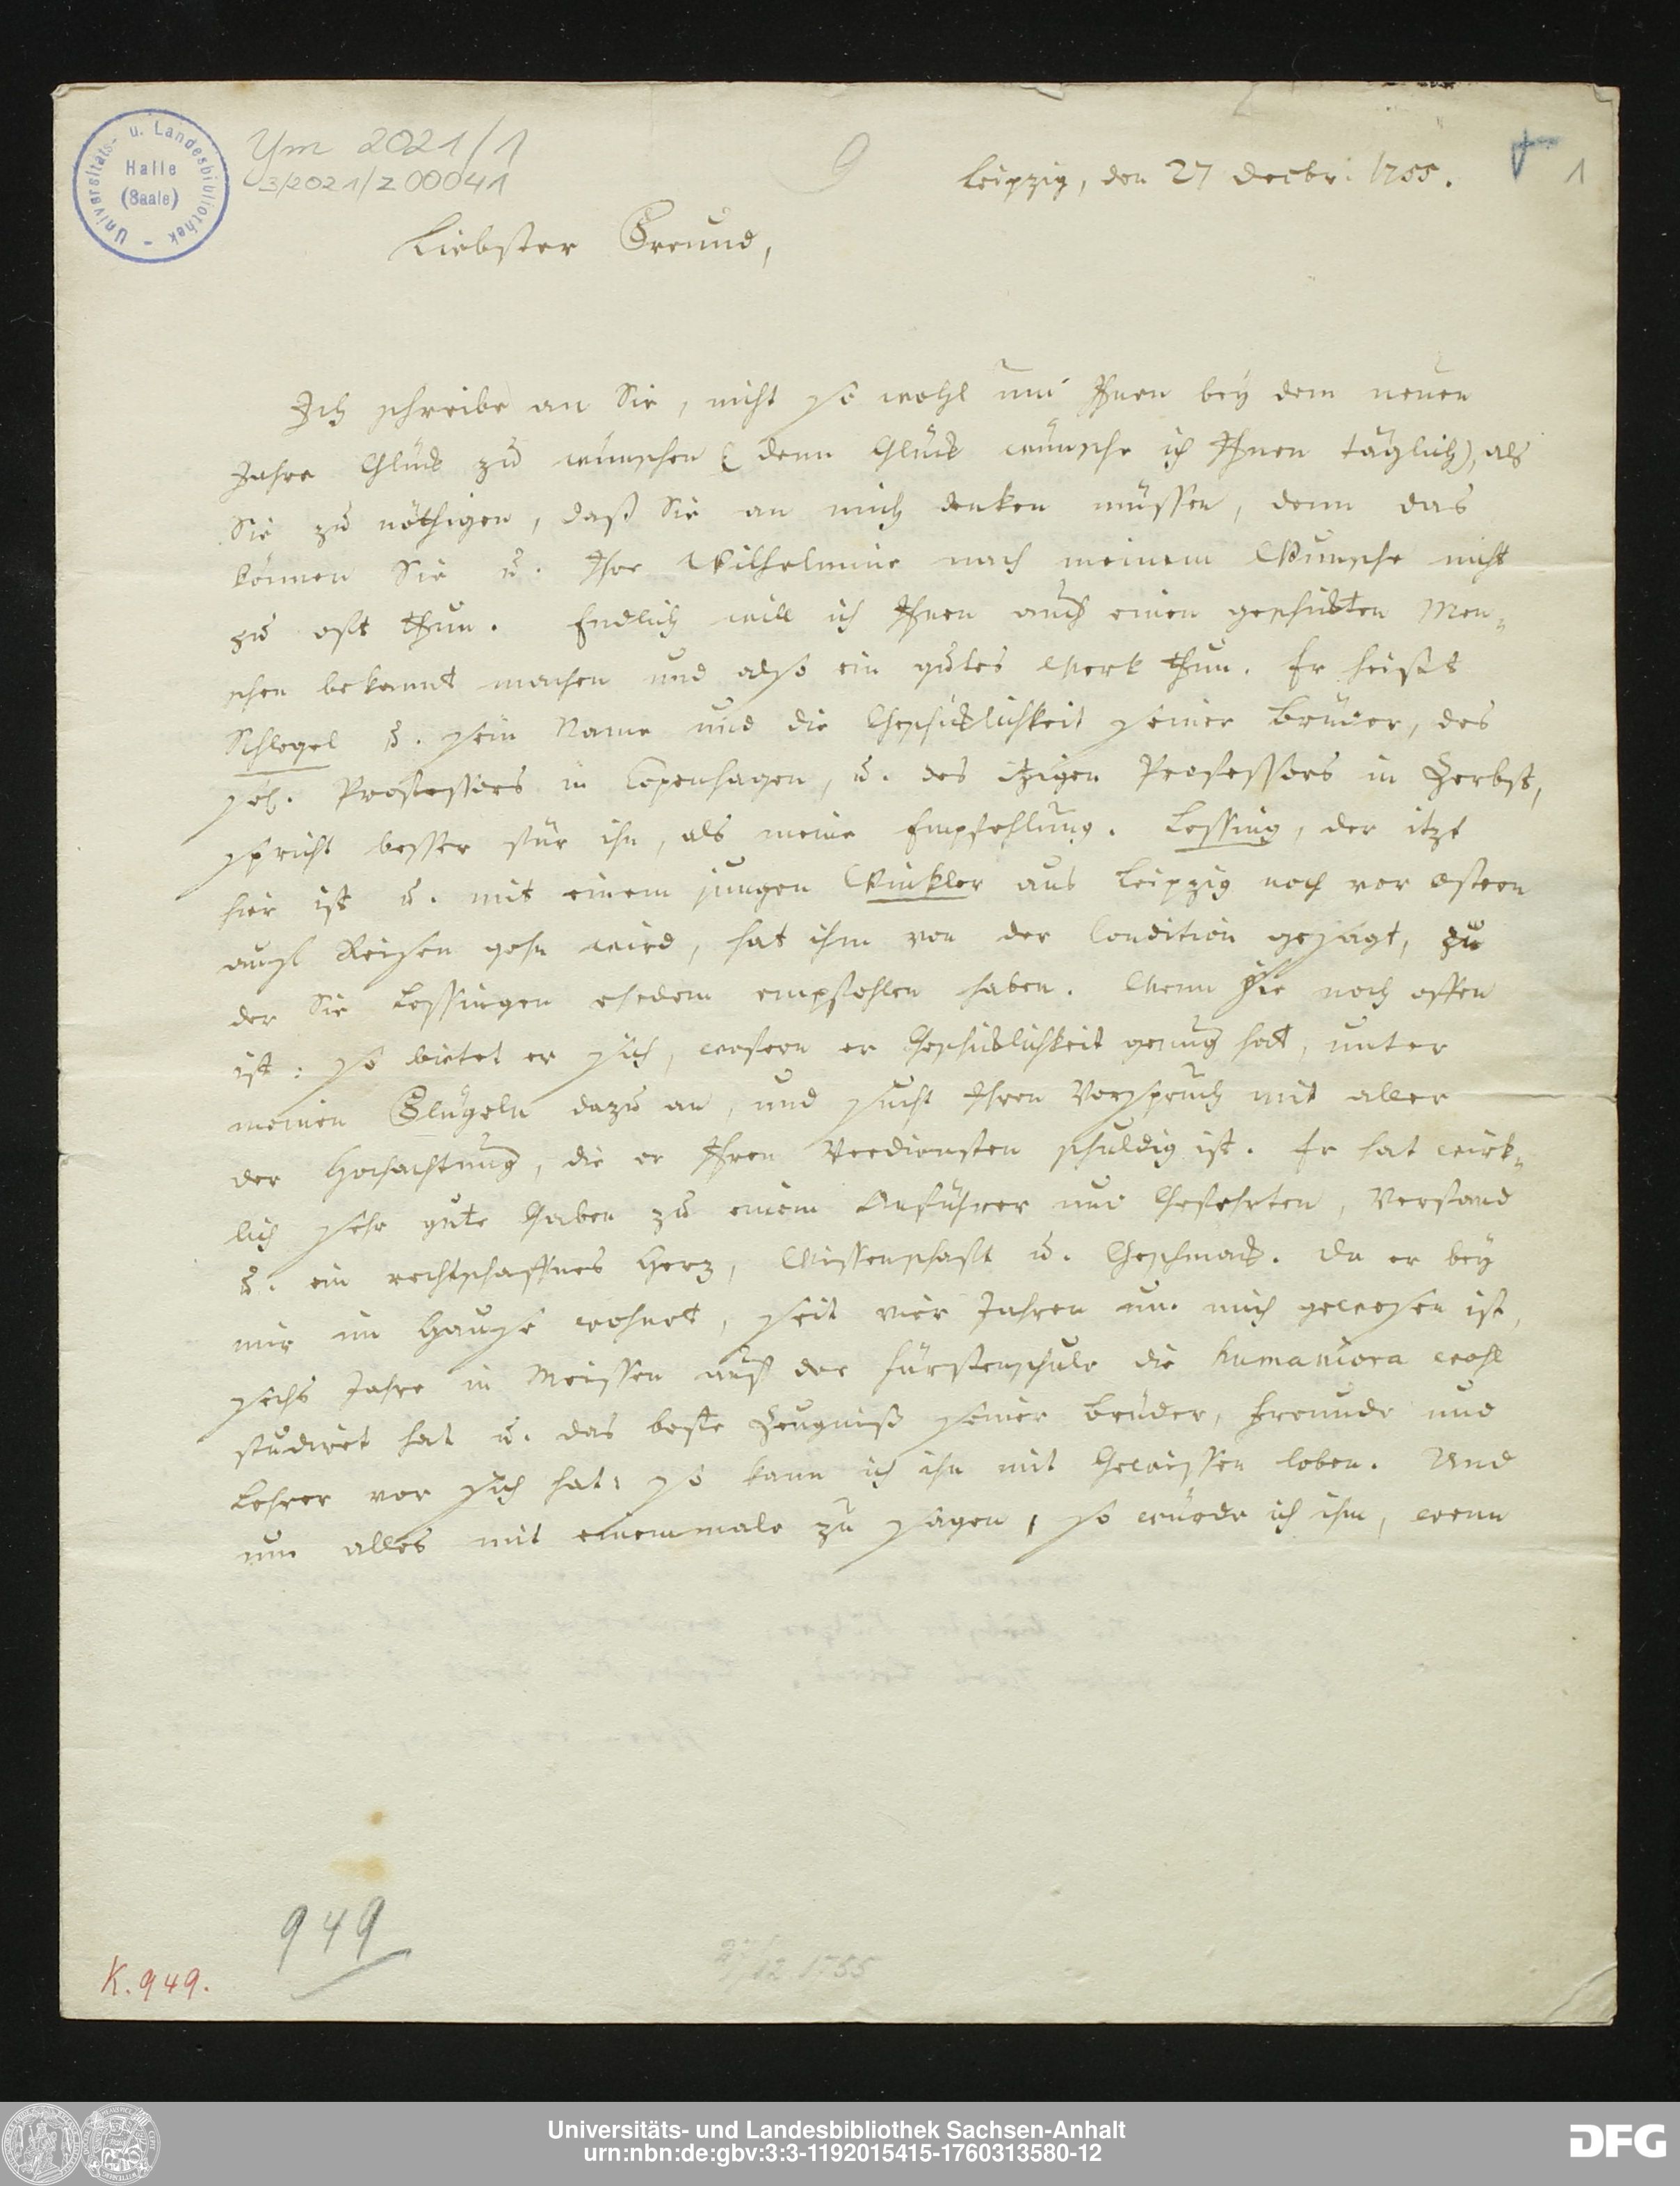 u. Landesbibliothek
Universitäts-
Halle
(Saale)
Ym 2021/1
3/2021/Z 00041
9
1
Leipzig, den 27 Decbr: 1755.
Liebster Freund,
Ich schreibe an Sie, nicht so wohl um Ihnen bey dem neuen
Jahre Glück zu wünschen (denn Glück wünsche ich Ihnen täglich), als
Sie zu nöthigen, daß Sie an mich denken müssen, denn das
können Sie u. Ihre Wilhelmine nach meinem Wunsche nicht
zu oft thun. Endlich will ich Ihnen auch einen geschickten Men-
schen bekannt machen und also ein gutes Werk thun. Er heißt
Schlegel u. sein Name und die Geschicklichkeit seiner Brüder, des
sel. Professors in Copenhagen, u. des itzigen Professors in Zerbst,
spricht besser für ihn, als meine Empfehlung. Lessing, der itzt
hier ist u. mit einem jungen Winkler aus Leipzig noch vor Ostern
auf Reisen gehn wird, hat ihm von der Condition gesagt, zu
der Sie Lessingen ehedem empfohlen haben. Wenn sie noch offen
ist: so bietet er sich, wofern er Geschicklichkeit genug hat, unter
meinen Flügeln dazu an, und sucht Ihren Vorspruch mit aller
der Hochachtung, die er Ihren Verdiensten schuldig ist. Er hat wirk-
lich sehr gute Gaben zu einem Anführer und Gefehrten, Verstand
u. ein rechtschaffnes Herz, Wissenschaft u. Geschmack. Da er bey
mir im Hause wohnet, seit vier Jahren um mich gewesen ist,
sechs Jahre in Meissen auf der Fürstenschule die humaniora wohl
studiret hat u. das beste Zeugniß seiner Brüder, Freunde und
Lehrer vor sich hat: so kann ich ihn mit Gewissen loben. Und
um alles mit einemmale zu sagen, so würde ich ihm, wenn
949
K. 949.
27/12 1755
Universitäts- und Landesbibliothek Sachsen-Anhalt
urn:nbn:de:gbv:3:3-1192015415-1760313580-12
DFG